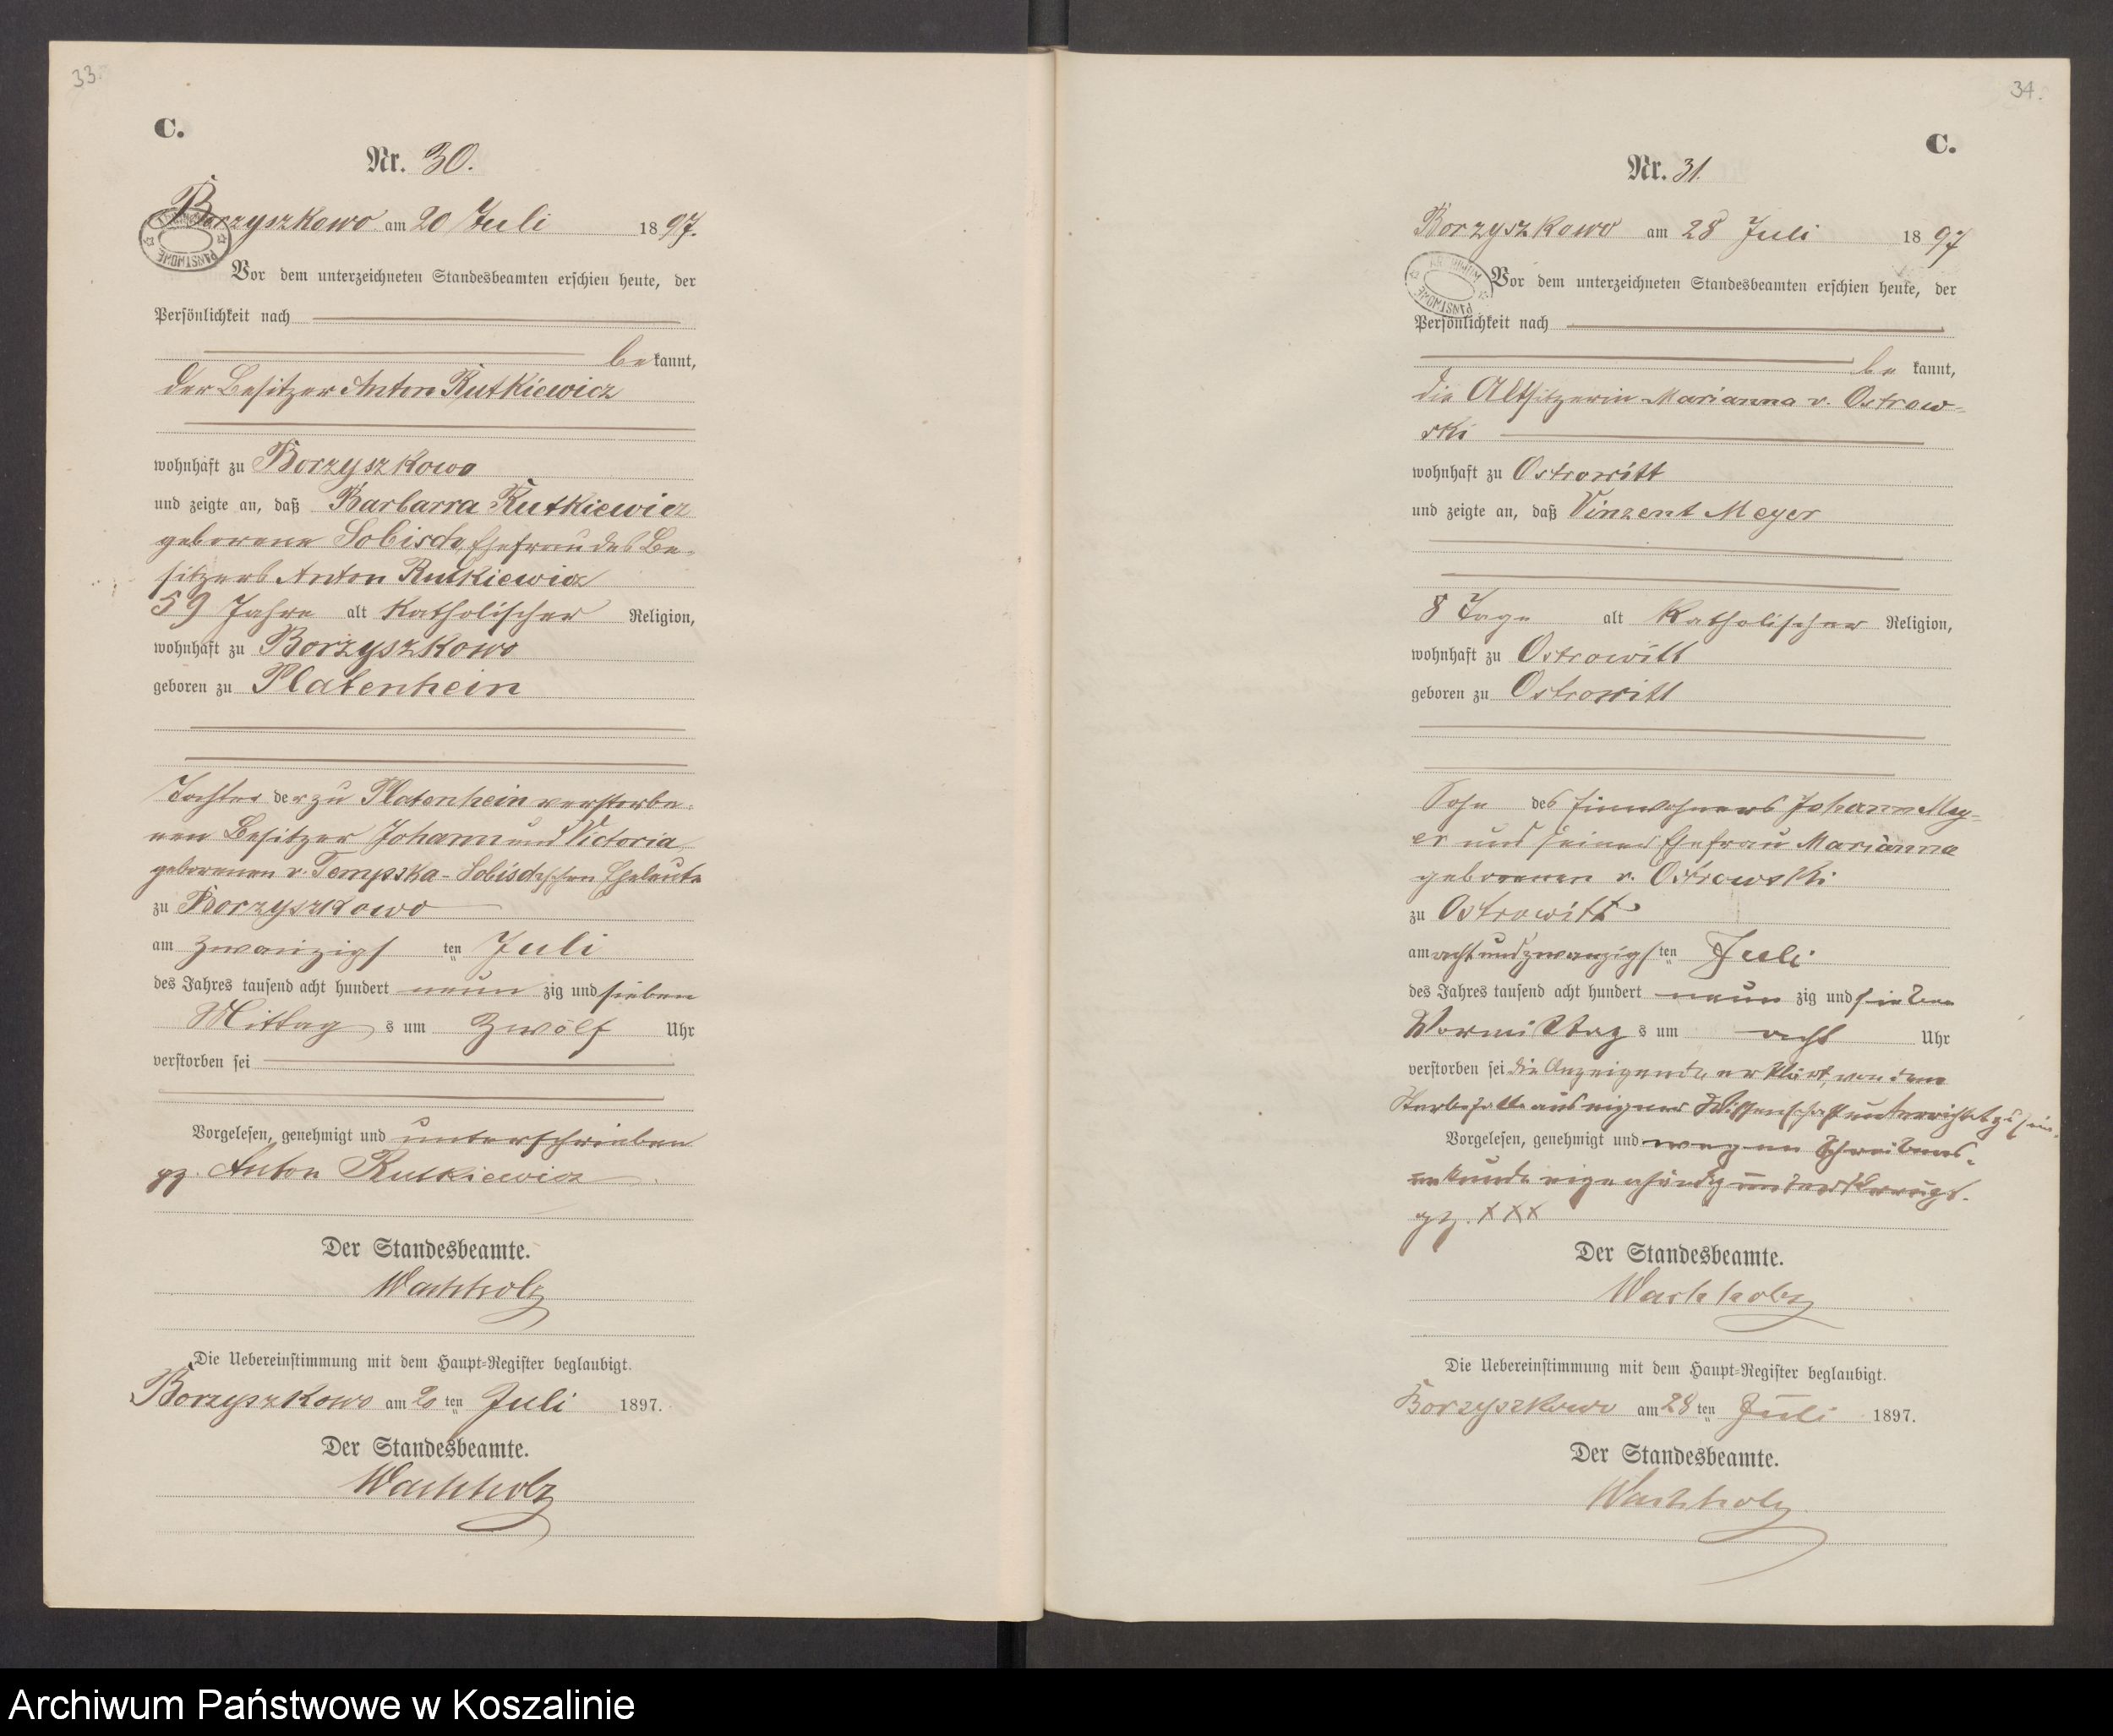 33.
C.
Nr. 30.
Borzyszkowo am 20 Juli 1897.
ARCHIWUM PAŃSTWOWE
Vor dem unterzeichneten Standesbeamten erschien heute, der
Persönlichkeit nach
bekannt,
der Besitzer Anton Rutkiewicz
wohnhaft zu Borzyszkowo
und zeigte an, daß Barbarra Rutkiewicz
geborene Sobisch, Ehefrau des Be-
sitzers Anton Rutkiewicz
59 Jahre alt katholischer Religion,
wohnhaft zu Borzyszkowo
geboren zu Platenhein
Tochter der zu Platenhein verstorbe-
nen Besitzer Johann und Victoria,
geborenen v. Tempska-Sobisch'schen Eheleute
zu Borzyszkowo
am zwanzigsten Juli
des Jahres tausend acht hundert neunzig und sieben
Mittags um zwölf Uhr
verstorben sei
Vorgelesen, genehmigt und unterschrieben
gz. Anton Rutkiewicz
Der Standesbeamte.
Wachholz
Die Uebereinstimmung mit dem Haupt-Register beglaubigt.
Borzyszkowo am 20ten Juli 1897.
Der Standesbeamte.
Wachholz
34.
C.
Nr. 31.
Borzyszkowo am 28 Juli 1897
ARCHIWUM PAŃSTWOWE
Vor dem unterzeichneten Standesbeamten erschien heute, der
Persönlichkeit nach
bekannt,
die Altsitzerin Marianna v. Ostrow-
ski
wohnhaft zu Ostrowitt
und zeigte an, daß Vinzent Meyer
8 Tage alt katholischer Religion,
wohnhaft zu Ostrowitt
geboren zu Ostrowitt
Sohn des Einwohners Johann Mey-
er und seiner Ehefrau Marianna
geborenen v. Ostrowski
zu Ostrowitt
am achtundzwanzigsten Juli
des Jahres tausend acht hundert neunzig und sieben
Vormittags um acht Uhr
verstorben sei die Anzeigende erklärt, von dem
Sterbefalle aus eigner Wissenschaft unterrichtet zu sein.
Vorgelesen, genehmigt und wegen Schreibens-
unkunde eigenhändig unterkreuzt.
gz. XXX
Der Standesbeamte.
Wachholz
Die Uebereinstimmung mit dem Haupt-Register beglaubigt.
Borzyszkowo am 28ten Juli 1897.
Der Standesbeamte.
Wachholz
Archiwum Państwowe w Koszalinie